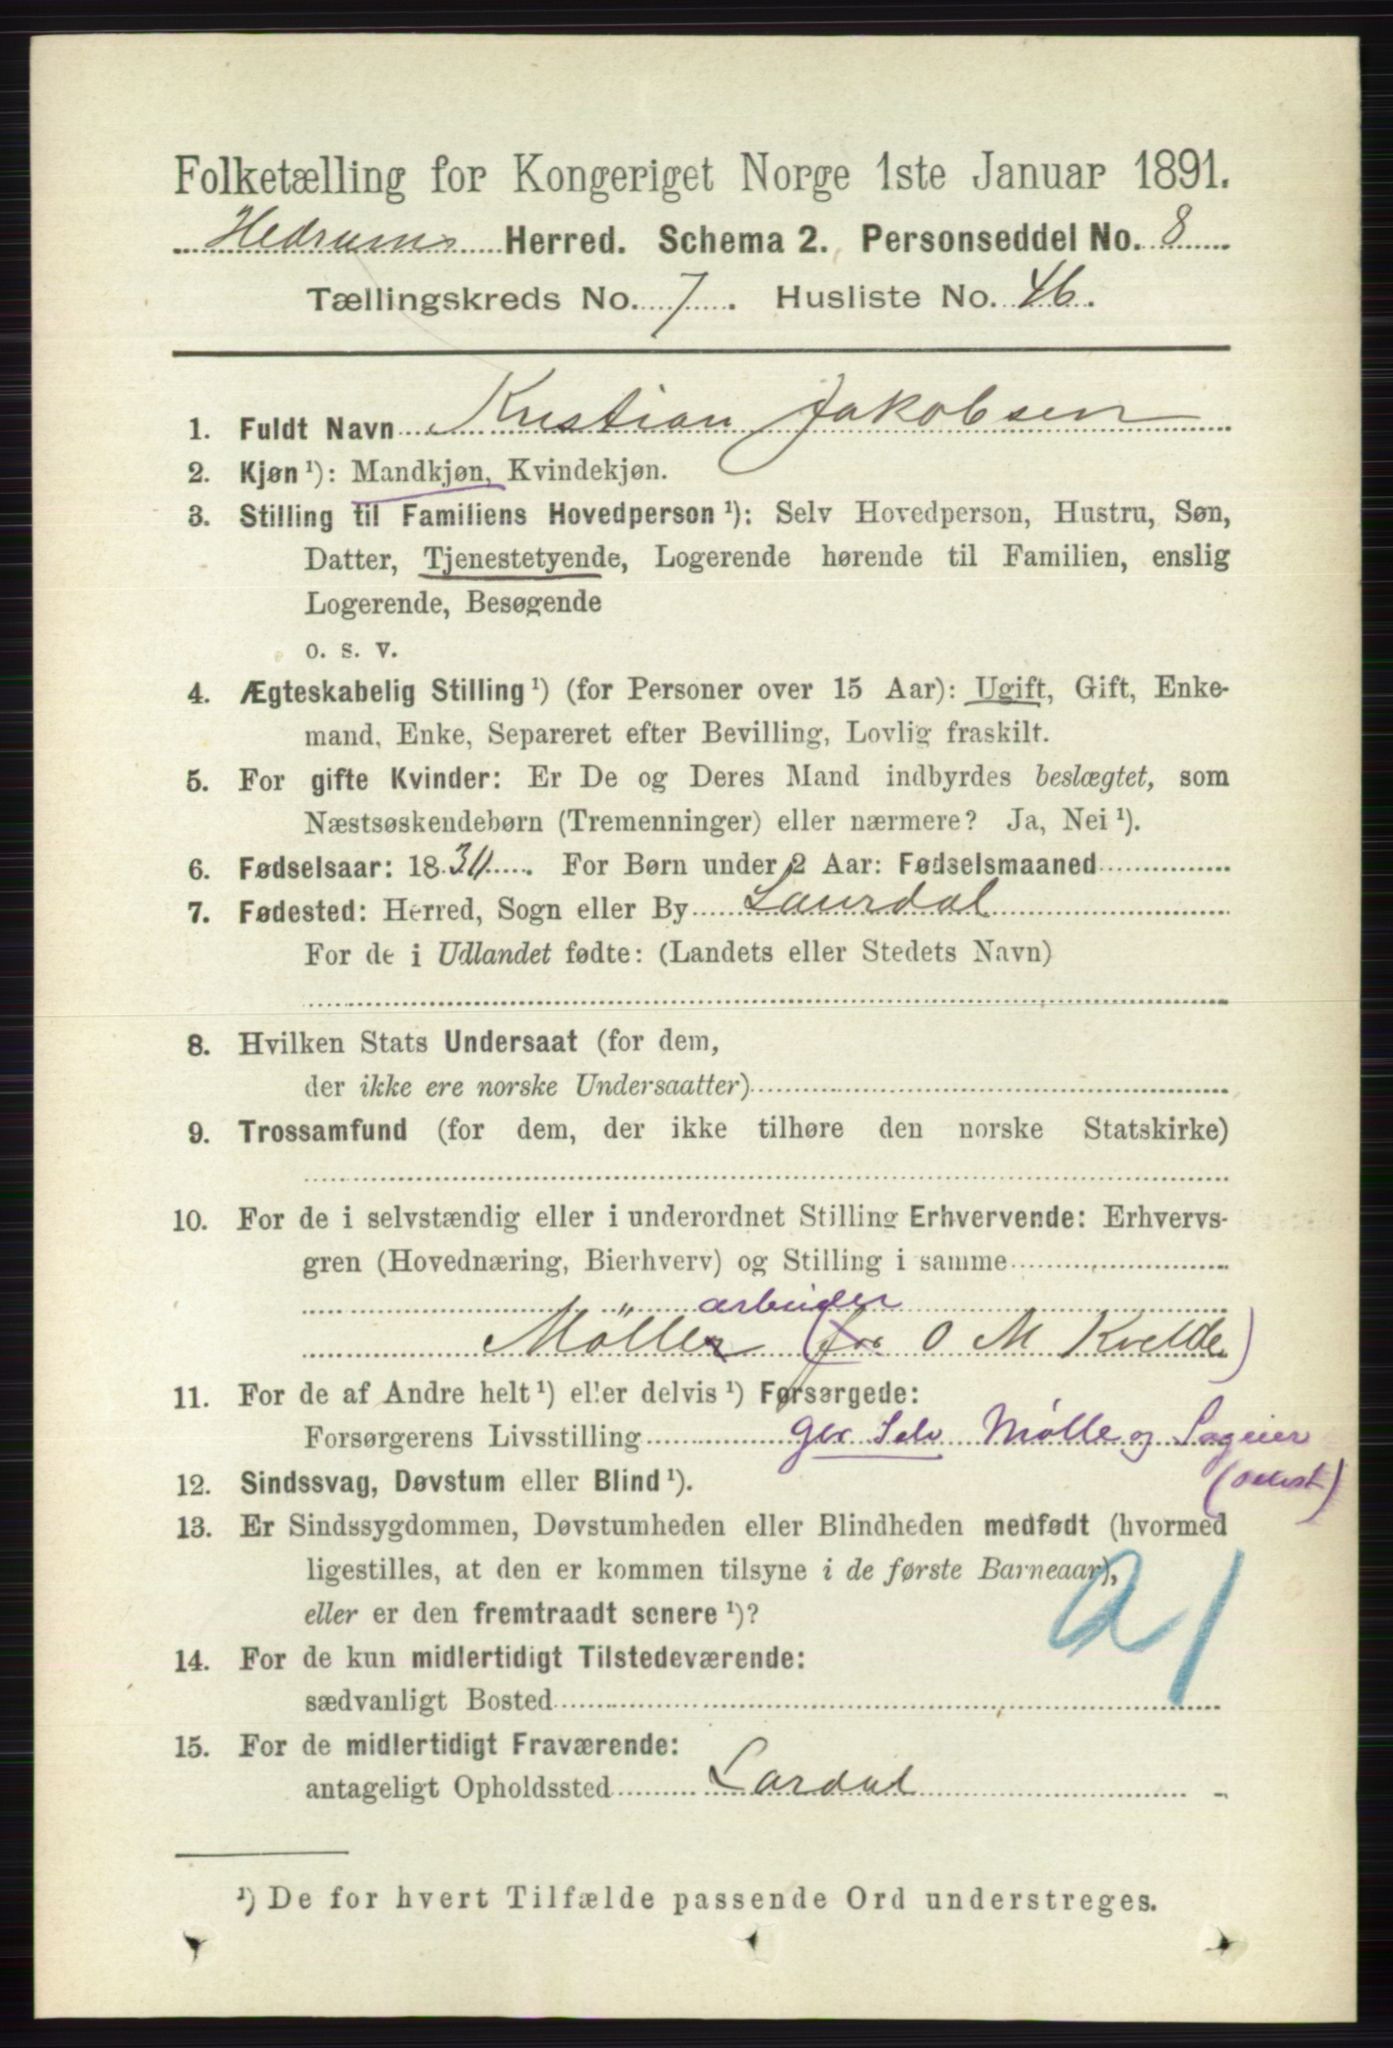 Folketælling for Kongeriget Norge 1ste Januar 1891.
Hedrums Herred. Schema 2. Personseddel No. 8
Tællingskreds No. 7. Husliste No. 46.
1. Fuldt Navn Kristian Jakobsen
2. Kjøn ¹): Mandkjøn, Kvindekjøn.
3. Stilling til Familiens Hovedperson ¹): Selv Hovedperson, Hustru, Søn,
Datter, Tjenestetyende, Logerende hørende til Familien, enslig
Logerende, Besøgende
o. s. v.
4. Ægteskabelig Stilling ¹) (for Personer over 15 Aar): Ugift, Gift, Enke-
mand, Enke, Separeret efter Bevilling, Lovlig fraskilt.
5. For gifte Kvinder: Er De og Deres Mand indbyrdes beslægtet, som
Næstsøskendebørn (Tremenninger) eller nærmere? Ja, Nei ¹).
6. Fødselsaar: 18 . For Børn under 2 Aar: Fødselsmaaned
7. Fødested: Herred, Sogn eller By Laurdal
For de i Udlandet fødte: (Landets eller Stedets Navn)
8. Hvilken Stats Undersaat (for dem,
der ikke ere norske Undersaatter)
9. Trossamfund (for dem, der ikke tilhøre den norske Statskirke)
10. For de i selvstændig eller i underordnet Stilling Erhvervende: Erhvervs-
gren (Hovednæring, Bierhverv) og Stilling i samme
arbeider
Möller (for O M Kvelde)
11. For de af Andre helt ¹) eller delvis ¹) Forsørgede:
Forsørgerens Livsstilling Selv Mølle og Sageier
12. Sindssvag, Døvstum eller Blind ¹).
13. Er Sindssygdommen, Døvstumheden eller Blindheden medfødt (hvormed
ligestilles, at den er kommen tilsyne i de første Barneaar),
eller er den fremtraadt senere ¹)?
21
14. For de kun midlertidigt Tilstedeværende:
sædvanligt Bosted
15. For de midlertidigt Fraværende:
antageligt Opholdssted Lardal
¹) De for hvert Tilfælde passende Ord understreges.